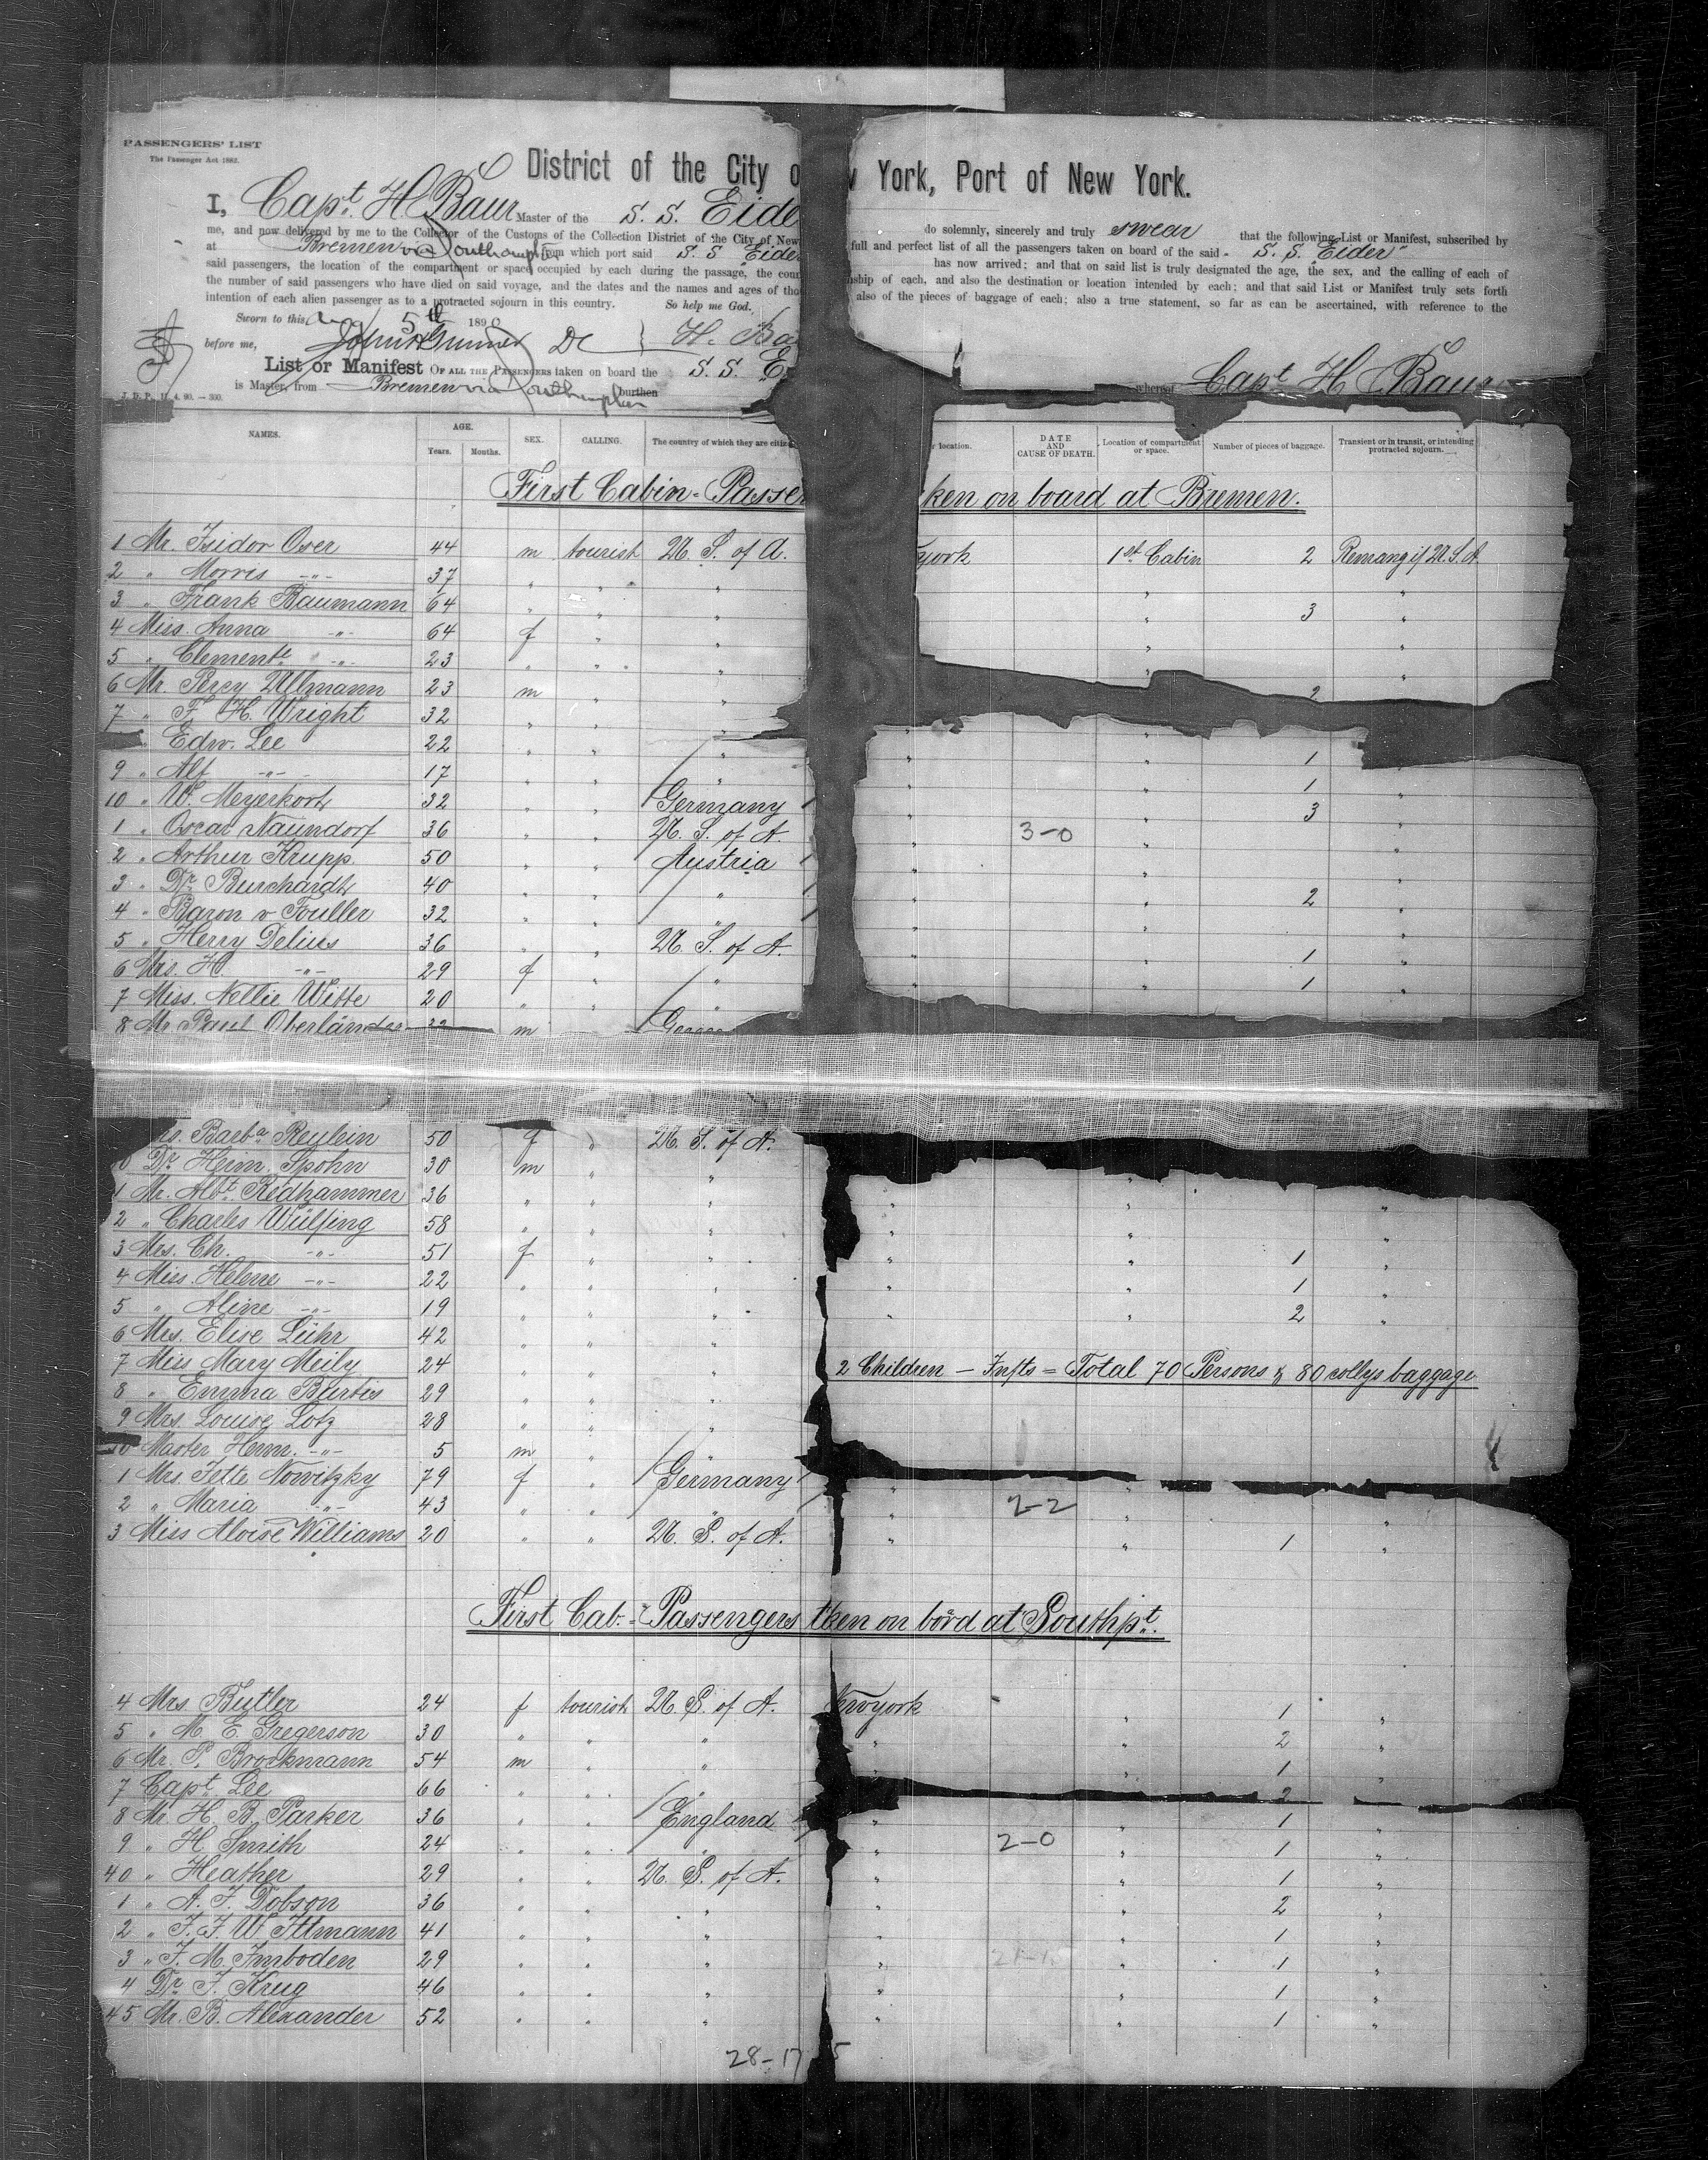 PASSENGERS' LIST
The Passenger Act 1882.
District of the City o w York, Port of New York.
I, Capt. H Baur Master of the S. S. Eide do solemnly, sincerely and truly swear that the following List or Manifest, subscribed by
me, and now delivered by me to the Collector of the Customs of the Collection District of the City of New full and perfect list of all the passengers taken on board of the said S. S. Eider
at Bremen via Southampton from which port said S. S Eider has now arrived; and that on said list is truly designated the age, the sex, and the calling of each of
said passengers, the location of the compartment or space occupied by each during the passage, the coun nship of each, and also the destination or location intended by each; and that said List or Manifest truly sets forth
the number of said passengers who have died on said voyage, and the dates and the names and ages of tho also of the pieces of baggage of each; also a true statement, so far as can be ascertained, with reference to the
intention of each alien passenger as to a protracted sojourn in this country. So help me God.
Sworn to this Aug 5th 189
before me, DC H. Ba
List or Manifest OF ALL THE PASSENGERS taken on board the S. S. E whereof Capt H Baur
is Master, from Bremen via Southampton burthen
J. D. P., 11. 4. 90. — 300.
NAMES. AGE. Years. Months. SEX. CALLING. The country of which they are citiz r location. DATE AND CAUSE OF DEATH. Location of compartment or space. Number of pieces of baggage. Transient or in transit, or intending protracted sojourn.
First Cabin-Passen ken on board at Bremen.
1 Mr. Isidor Oser 44 m tourist U. S. of A. york 1st Cabin 2 U. S. A.
2 " Morris -"- 37 " " "
3 " Frank Baumann 64 " " " " 3 "
4 Miss. Anna -"- 64 f " " " "
5 " Clemente -"- 23 " " " " "
6 Mr. Percy Ullmann 23 m " " 2
7 " F. H. Wright 32 " " " " "
" Edw. Lee 22 " " " " " 1 "
9 " Alf -"- 17 " " " " " 1 "
10 " W. Meyerkort 32 " " Germany " " 3 "
1 " Oscar Naundorf 36 " " U. S. of A. " 3-0 " "
2 " Arthur Krupp. 50 " " Austria " " "
3 " Dr Burchardt 40 " " " " " 2 "
4 " Baron v Fouller 32 " " " " " "
5 " Herry Delius 36 " " U. S. of A. " " 1 "
6 Mrs. H. -"- 29 f " " " " 1 "
7 Miss. Nellie Witte 20 " " "
8 Mr Paul Oberländer m
Barba Reylein 50 f " U. S. of A.
Dr Heim. Spohn 30 m " " "
1 Mr. Albt. Redhammer 36 " " " " " "
2 " Charles Wülfing 58 " " " " " "
3 Mrs. Ch. -"- 51 f " " " " 1 "
4 Miss. Helene -"- 22 " " " " " 1 "
5 " Aline -"- 19 " " " " " 2 "
6 Mrs. Elise Lühr 42 " " "
7 Miss Mary Meily 24 " " " 2 Children — Infts = Total 70 Persons & 80 collys baggage
8 " Emma Burtis 29 " " "
9 Mrs. Louise Lotz 28 " " "
Master Herm. -"- 5 m " "
1 Mrs Jette Nowitzky 79 f " Germany " "
2 " Maria -"- 43 " " " " 2-2 " "
3 Miss Aloise Williams 20 " " U. S. of A. " " 1 "
First Cab.-Passengers tken on bord at Southpt.
4 Mrs Butler 24 f tourist U. S. of A. Newyork " 1 "
5 " M E Gregerson 30 " " " " " 2 "
6 Mr. P. Brockmann 54 m " " " " 1 "
7 Capt. Lee 66 " " " 2
8 Mr. H. B. Parker 36 " " England " " 1 "
9 " H. Smith 24 " " " " 2-0 " 1 "
40 " Heather 29 " " U. S. of A. " " 1 "
1 " A. F. Dobson 36 " " " " " 2 "
2 " F. F. W Ittmann 41 " " " " " 1 "
3 " F. M. Imboden 29 " " " " " 1 "
4 Dr F. Krug 46 " " " " " 1 "
45 Mr. B. Alexander 52 " " " " " 1 "
28-17 5